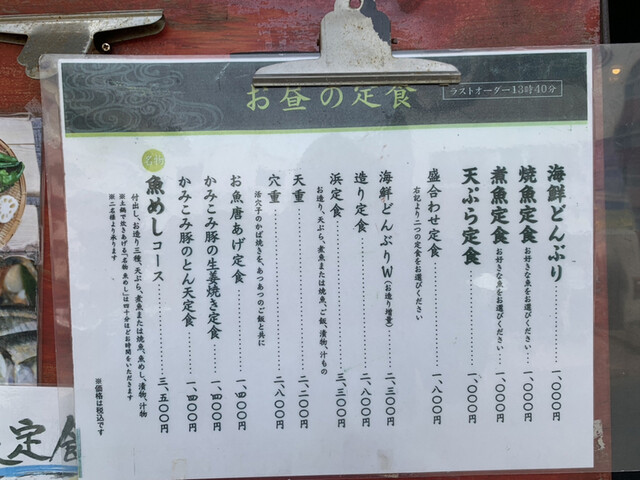 お昼の定食
ラストオーダー13時40分
海鮮どんぶり 一、〇〇〇円
焼魚定食 お好きな魚をお選びください 一、〇〇〇円
煮魚定食 お好きな魚をお選びください 一、〇〇〇円
天ぷら定食 一、〇〇〇円
盛合わせ定食 一、八〇〇円
右記より二つの定食をお選びください
海鮮どんぶりW(お造り増量) 二、三〇〇円
造り定食 二、八〇〇円
浜定食 三、三〇〇円
お造り、天ぷら、煮魚または焼魚、ご飯、漬物、汁もの
天重 二、二〇〇円
穴重 二、八〇〇円
活穴子のかば焼きを、あつあつのご飯と共に
お魚唐あげ定食 一、四〇〇円
かみこみ豚の生姜焼き定食 一、四〇〇円
かみこみ豚のとん天定食 一、四〇〇円
魚めしコース 三、五〇〇円
付出し、お造り三種、天ぷら、煮魚または焼魚、魚めし、漬物、汁物
※土鍋で炊きあげる「名物 魚めし」は四十分ほどお時間をいただきます
※二名様より承ります
※価格は税込です
定食